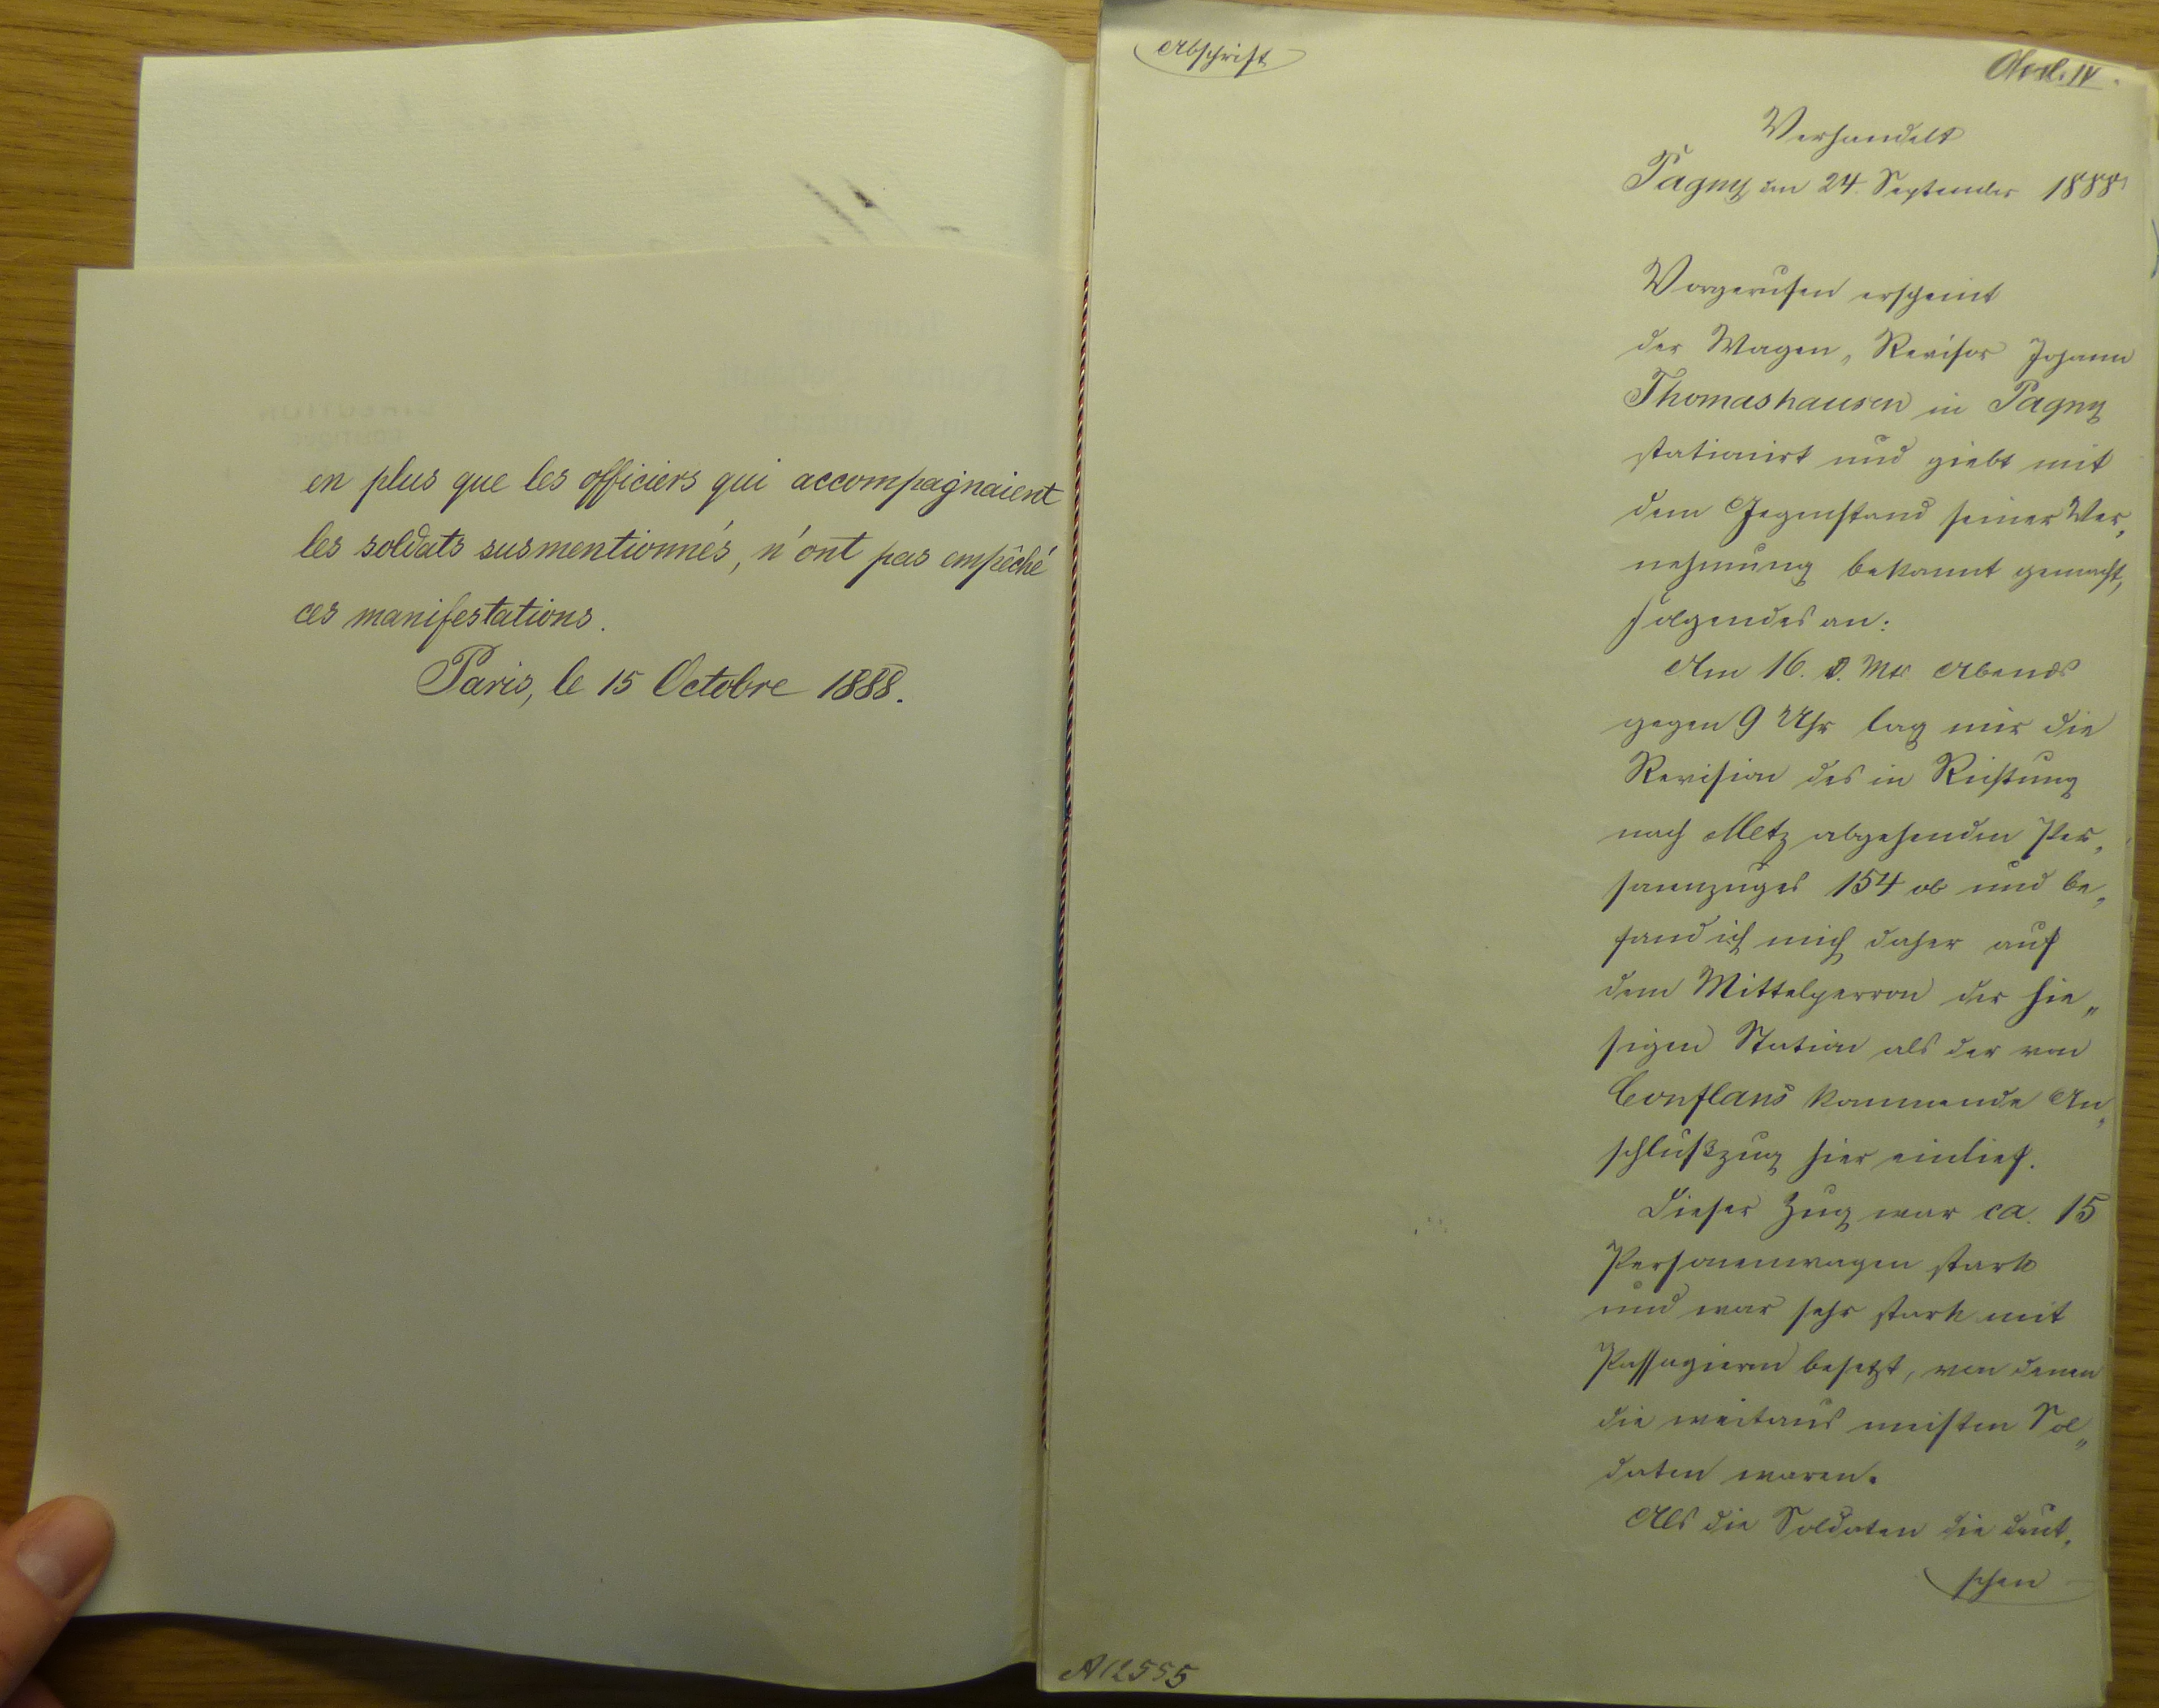 en plus que les officiers qui accompagnaient
les soldats susmentionnés, n'ont pas empêché
ces manifestations.
Paris, le 15 Octobre 1888.
Abschrift
Verhandelt
Pagny den 24. September 1888
Vorgerufen erscheint
der Wagen„ Revisor Johann
Thomashausen in Pagny
stationirt und giebt mit
dem Gegenstand seiner Ver„
nehmung bekannt gemacht,
folgendes an:
Am 16. d. Mts Abends
gegen 9 Uhr lag mir die
Revision des in Richtung
nach Metz abgehenden Per„
sonenzuges 154 ob und be„
fand ich mich daher auf
dem Mittelperron der hie„
sigen Station als der von
Conflans kommende An„
schlußzug hier einlief.
Dieser Zug war ca. 15
Personenwagen stark
und war sehr stark mit
Passagieren besetzt, von denen
die weitaus meisten Sol„
daten waren.
Als die Soldaten die deut„
schen
A 12555